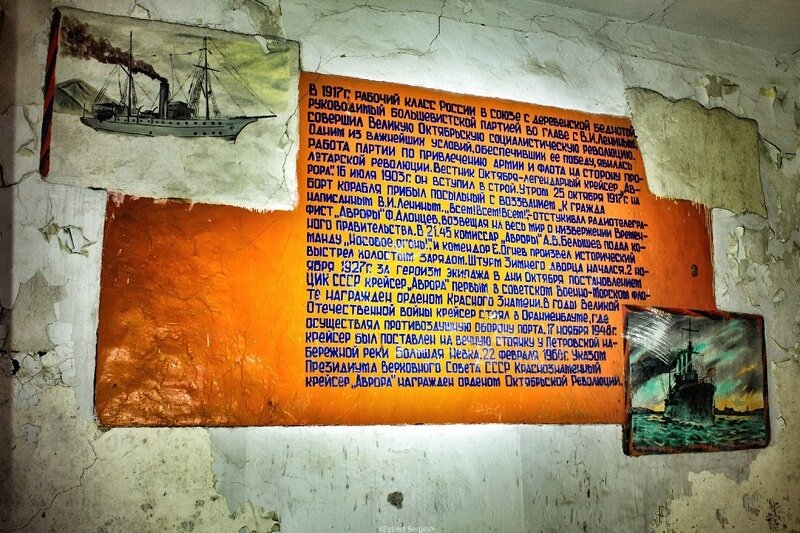 В 1917г. рабочий класс России в союзе с деревенской беднотой,
руководимый большевистской партией во главе с В.И.Лениным,
совершил Великую Октябрьскую социалистическую революцию.
Одним из важнейших условий, обеспечивших ее победу, явилась
работа партии по привлечению армии и флота на сторону про-
летарской революции. Вестник Октября-легендарный крейсер „Ав-
рора". 16 июля 1903г. он вступил в строй. Утром 25 октября 1917г. на
борт корабля прибыл посыльный с воззванием „К гражда
написанным В.И.Лениным. „Всем! Всем! Всем!"-отстукивал радиотелегра-
фист „Авроры" Ф.Алонцев, возвещая на весь мир о низвержении Времен-
ного правительства. В 21.45 комиссар „Авроры" А.В.Белышев подал ко-
манду „Носовое, огонь!" и комендор Е.Огнев произвел исторический
выстрел холостым зарядом. Штурм Зимнего дворца начался. 2 но-
ября 1927г. за героизм экипажа в дни Октября постановлением
ЦИК СССР крейсер „Аврора" первым в советском Военно-Морском фло-
те награжден орденом Красного Знамени. В годы Великой
Отечественной войны крейсер стоял в Ораниенбауме, где
осуществлял противовоздушную оборону порта. 17 ноября 1948г.
крейсер был поставлен на вечную стоянку у Петровской на-
бережной реки Большая Невка. 22 февраля 1968г. Указом
Президиума Верховного Совета СССР Краснознаменный
крейсер „Аврора" награжден орденом Октябрьской Революции.
«Eybert Sergey»